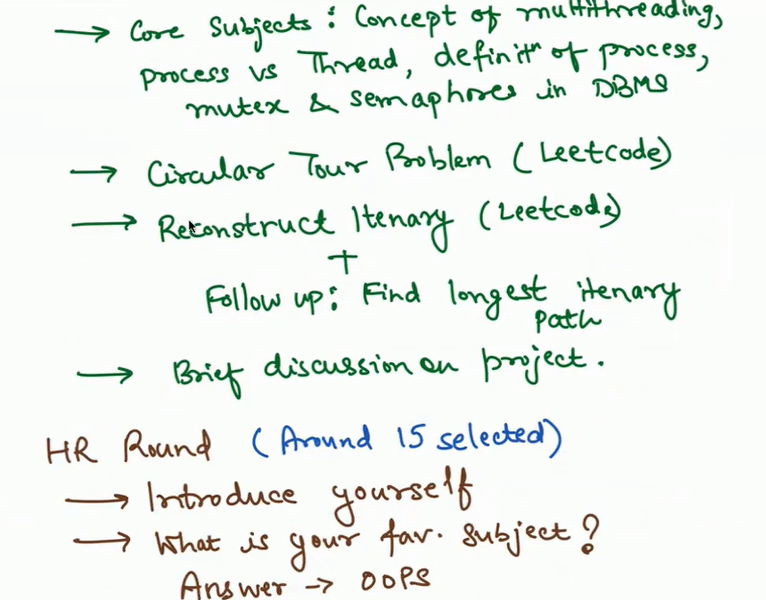 → Core Subjects : Concept of multithreading,
process vs Thread, definitⁿ of process,
mutex & semaphores in DBMS
→ Circular Tour Problem (Leetcode)
→ Reconstruct Itenary (Leetcode)
+
Follow up: Find longest itenary
path
→ Brief discussion on project.
HR Round (Around 15 selected)
→ Introduce yourself
→ What is your fav. subject?
Answer → OOPS